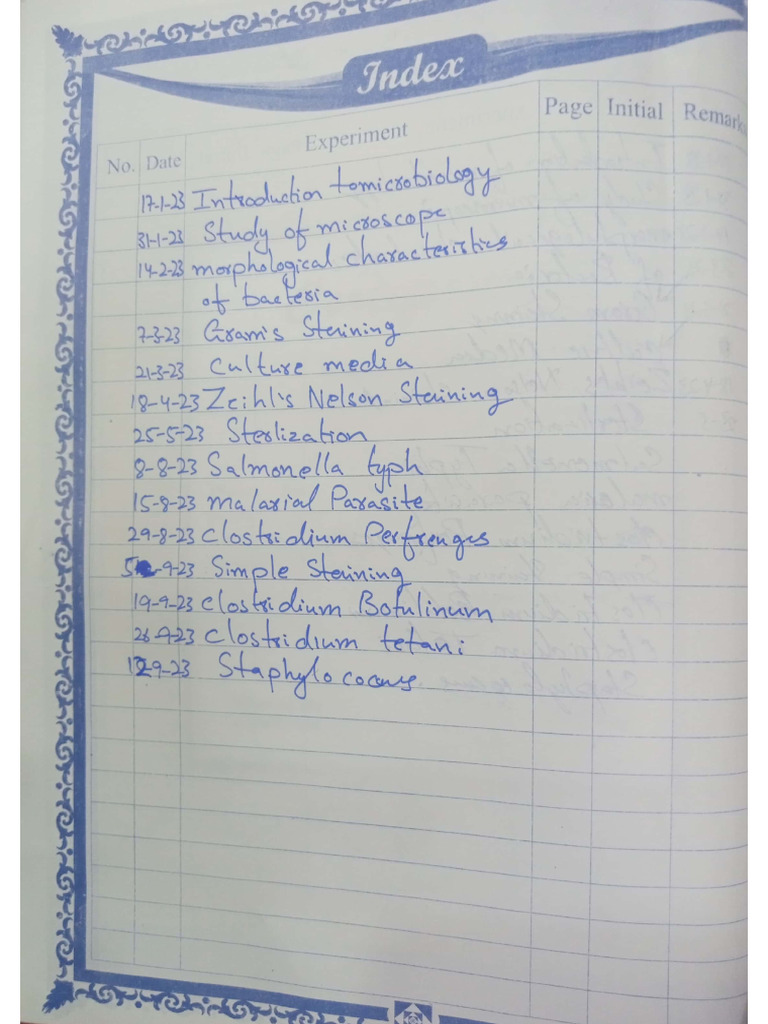 Index
No. Date Experiment Page Initial Remarks
17-1-23 Introduction tomicrobiology
31-1-23 Study of microscope
14-2-23 morphological characteristics
of bacteria
7-3-23 Gram's Staining
21-3-23 Culture media
18-4-23 Zeihl's Nelson Staining
25-5-23 Sterlization
8-8-23 Salmonella typh
15-8-23 Malarial Parasite
29-8-23 Clostridium Perfrenges
5-9-23 Simple Staining
19-9-23 Clostridium Botulinum
26-9-23 Clostridium tetani
12-9-23 Staphylococcus